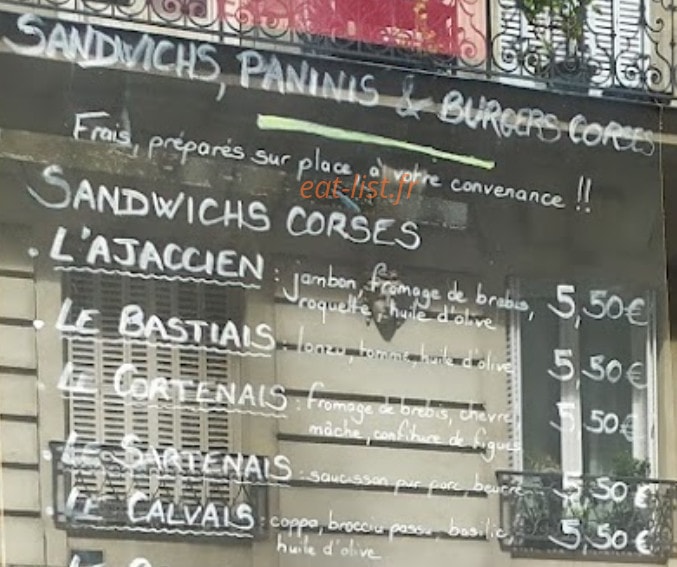 SANDWICHS, PANINIS & BURGERS CORSES
Frais, préparés sur place, à votre convenance !!
eat-list.fr
SANDWICHS CORSES
. L'AJACCIEN : jambon, fromage de brebis, 5,50€
roquette, huile d'olive
. LE BASTIAIS : lonzu, tomme, huile d'olive 5,50€
. LE CORTENAIS : fromage de brebis, chèvre, 5,50€
mâche, confiture de figues
. LE SARTENAIS : saucisson pur porc, beurre 5,50€
. LE CALVAIS : coppa, brocciu passu, basilic, 5,50€
huile d'olive
LE